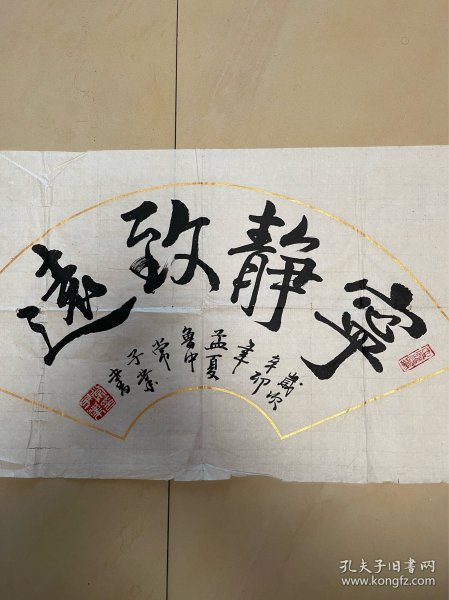 寧靜致遠
歲次
辛卯
年
孟夏
魯中
常
子業
書
孔夫子旧书网
www.kongfz.com